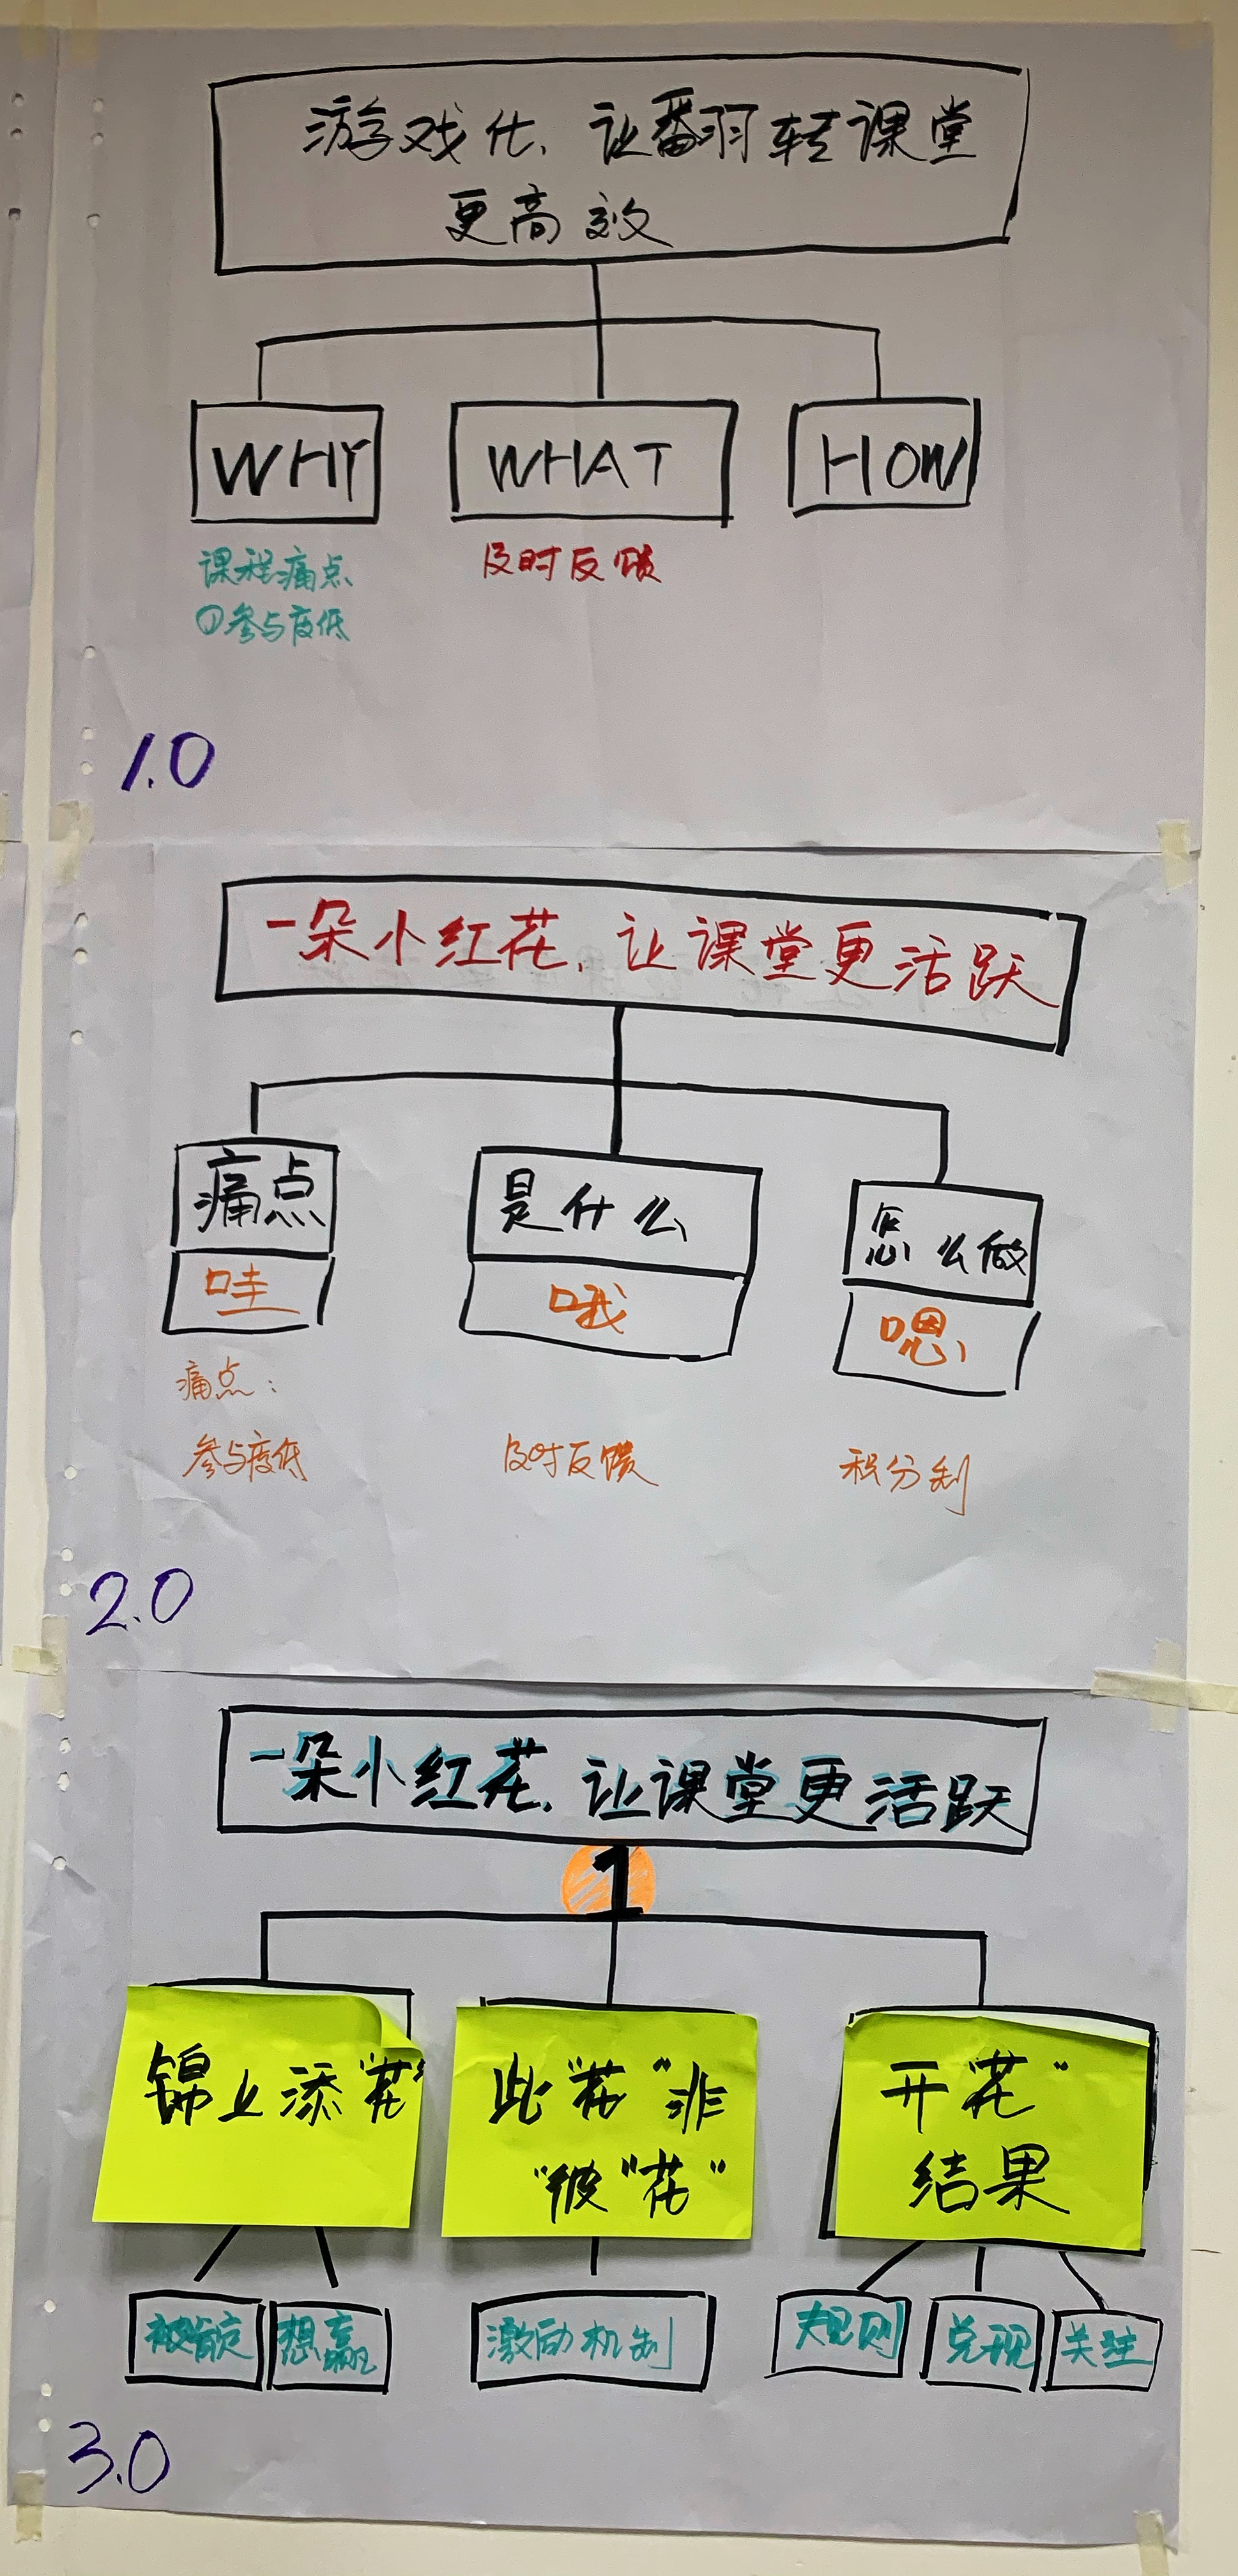 游戏化、让翻转课堂
更高效
WHY
WHAT
HOW
课程痛点
①参与度低
及时反馈
1.0
一朵小红花,让课堂更活跃
痛点
哇
是什么
哦
怎么做
嗯
痛点:
参与度低
及时反馈
积分制
2.0
一朵小红花,让课堂更活跃
1
锦上添“花”
此“花”非
“彼“花”
开“花”
结果
被肯定
想赢
激励机制
规则
兑现
关注
3.0